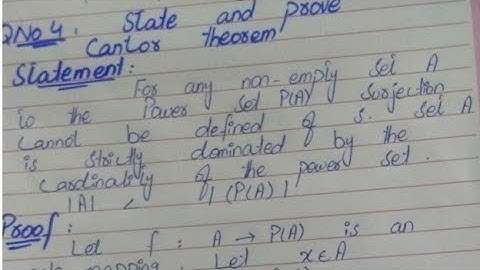 QNo 4. State and prove
Cantor theorem
Statement:
For any non-empty set A
to the Power set P(A) surjection
cannot be defined of s. set A
is strictly dominated by the
cardinality of the power set.
|A| < |(P(A)|
Proof:
Let f: A → P(A) is an
mapping. Let x∈A